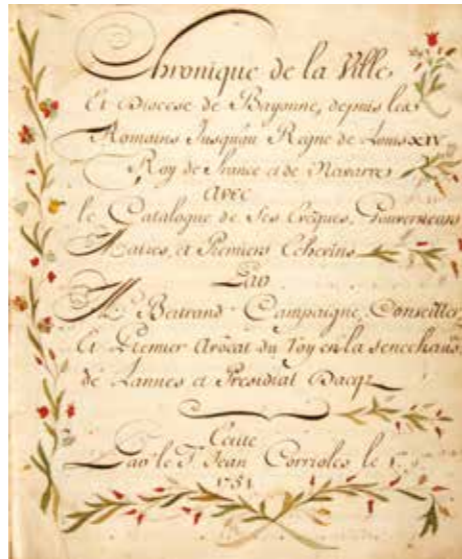 Chronique de la Ville,
Et Diocese de Bayonne, depuis les
Romains Jusqu'au Regne de Louis XIV
Roy de France et de Navarre
Avec
le Catalogue de Ses Evêques, Gouverneurs
Maires, et Premiers Echevins
Par
Mr. Bertrand Campaigne, Conseiller,
et Premier Avocat du Roy en la senechaus.
de Lannes et Presidial Dacqz
Ecrite
Par le Jean Corrioles le
1751